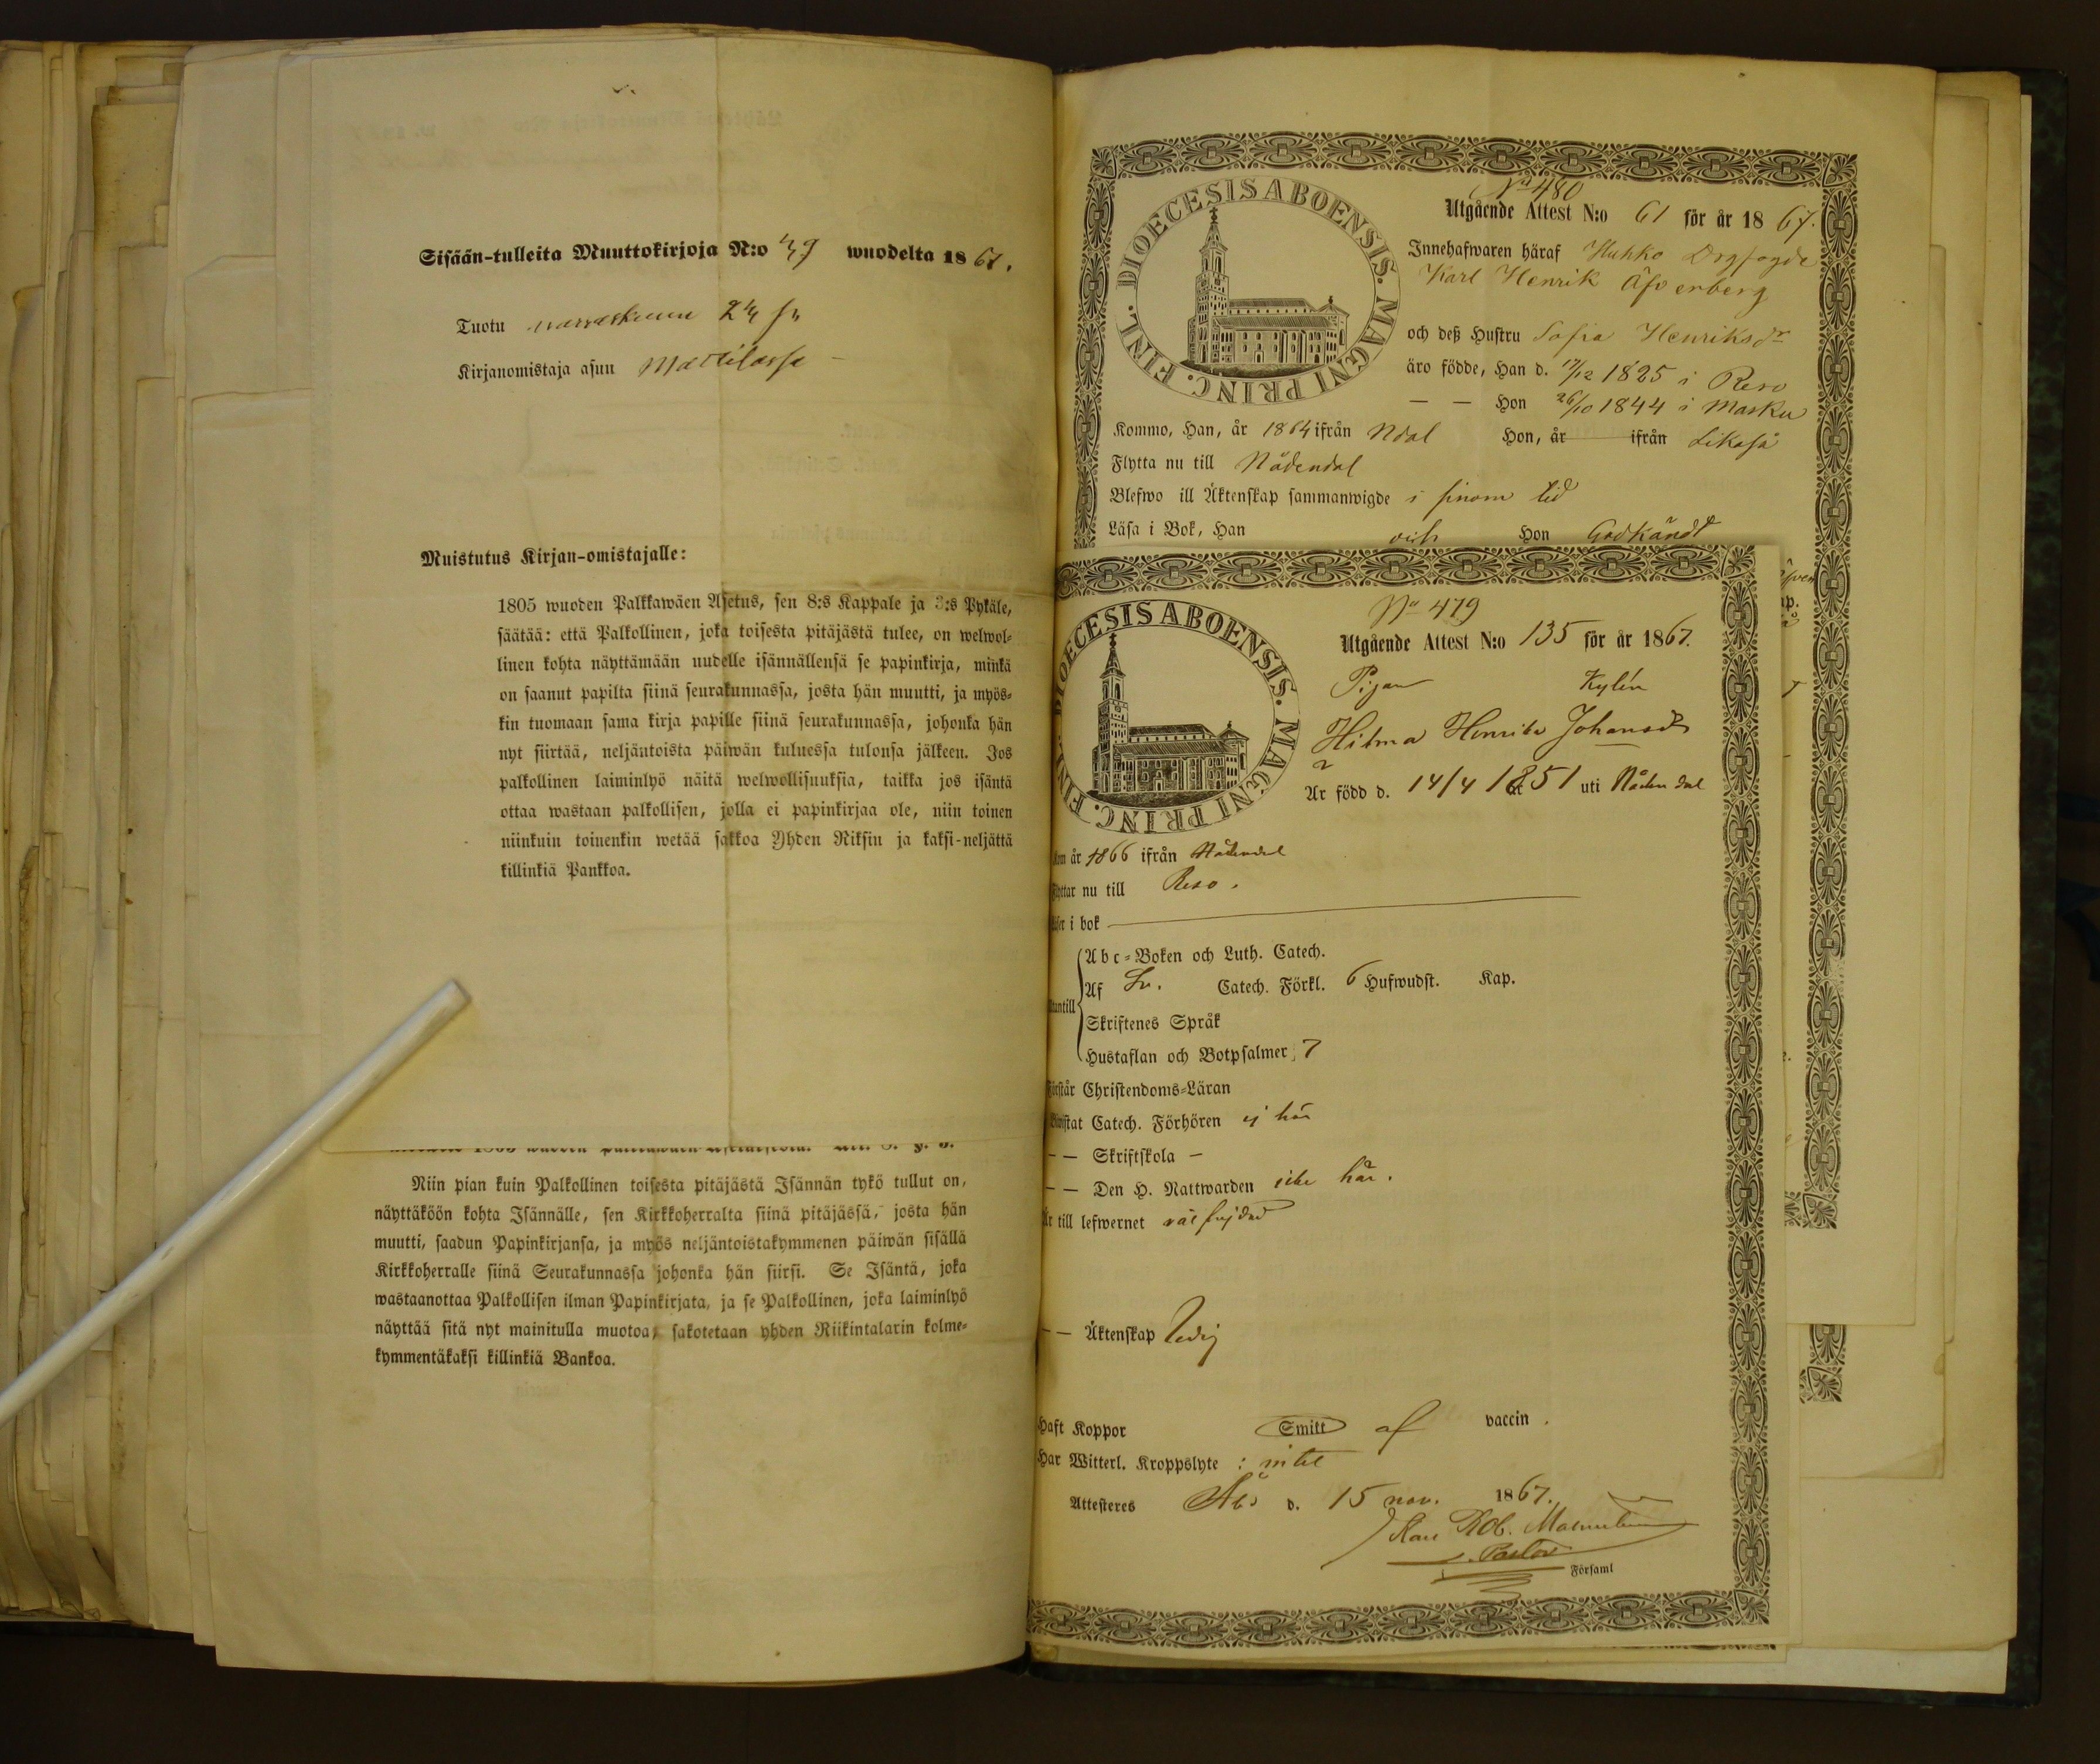 Sisään-tulleita Muuttokirjoja N:o 49 wuodelta 1867.
Tuotu marraskuun 24 p
Kirjanomistaja asuu Mattilassa
Muistutus Kirjan-omistajalle:
1805 wuoden Palkkawäen Asetus, sen 8:s Kappale ja 3:s Pykäle,
säätää: että Palkollinen, joka toisesta pitäjästä tulee, on welwol-
linen kohta näyttämään uudelle isännällensä se papinkirja, minkä
on saanut papilta siinä seurakunnassa, josta hän muutti, ja myös-
kin tuomaan sama kirja papille siinä seurakunnassa, johonka hän
nyt siirtää, neljäntoista päiwän kuluessa tulonsa jälkeen. Jos
palkollinen laiminlyö näitä welwollisuuksia, taikka jos isäntä
ottaa wastaan palkollisen, jolla ei papinkirjaa ole, niin toinen
niinkuin toinenkin wetää sakkoa Yhden Riksin ja kaksi-neljättä
killinkiä Pankkoa.
Niin pian kuin Palkollinen toisesta pitäjästä Isännän tykö tullut on,
näyttäköön kohta Isännälle, sen Kirkkoherralta siinä pitäjässä, josta hän
muutti, saadun Papinkirjansa, ja myös neljäntoistakymmenen päiwän sisällä
Kirkkoherralle siinä Seurakunnassa johonka hän siirsi. Se Isäntä, joka
wastaanottaa Palkollisen ilman Papinkirjata, ja se Palkollinen, joka laiminlyö
näyttää sitä nyt mainitulla muotoa, sakotetaan yhden Riikintalarin kolme-
kymmentäkaksi killinkiä Bankoa.
DIOECESIS ABOENSIS. MAGNI PRINC. FINL.
No 480
Utgående Attest N:o 61 för år 1867.
Innehafwaren häraf Huhko Drgfogde
Karl Henrik Åfverberg
och deß Hustru Sofia Henriksdr
äro födde, Han d. 17/12 1825 i Reso
— — Hon 26/10 1844 i Masku
Kommo, Han, år 1864 ifrån Ndal Hon, år ifrån Likaså
Flytta nu till Nådendal
Blefwo ill Äktenskap sammanwigde i sinom tid
Läsa i Bok, Han och Hon Godkändt
DIOECESIS ABOENSIS. MAGNI PRINC. FINL.
No 479
Utgående Attest N:o 135 för år 1867.
Pigan Kylén
Hilma Henrika Johansdr
Är född d. 14/4 1851 uti Nådendal
Kom år 1866 ifrån Nådendal
Flyttar nu till Reso.
Läser i bok
Abc-Boken och Luth. Catech.
Af Sv. Catech. Förkl. 6 Hufwudst. Kap.
Utantill
Skriftenes Språk
Hustaflan och Botpsalmer 7
Förstår Christendoms-Läran
Bewistat Catech. Förhören ej här
— — Skriftskola —
— — Den H. Nattwarden icke här.
Är till lefwernet välfrejdad
— — Äktenskap Ledig
Haft Koppor Smitt af vaccin.
Har Witterl. Kroppslyte : intet
Attesteres Åbo d. 15 nov. 1867.
Karl Rob. Malm
Pastor
Församl